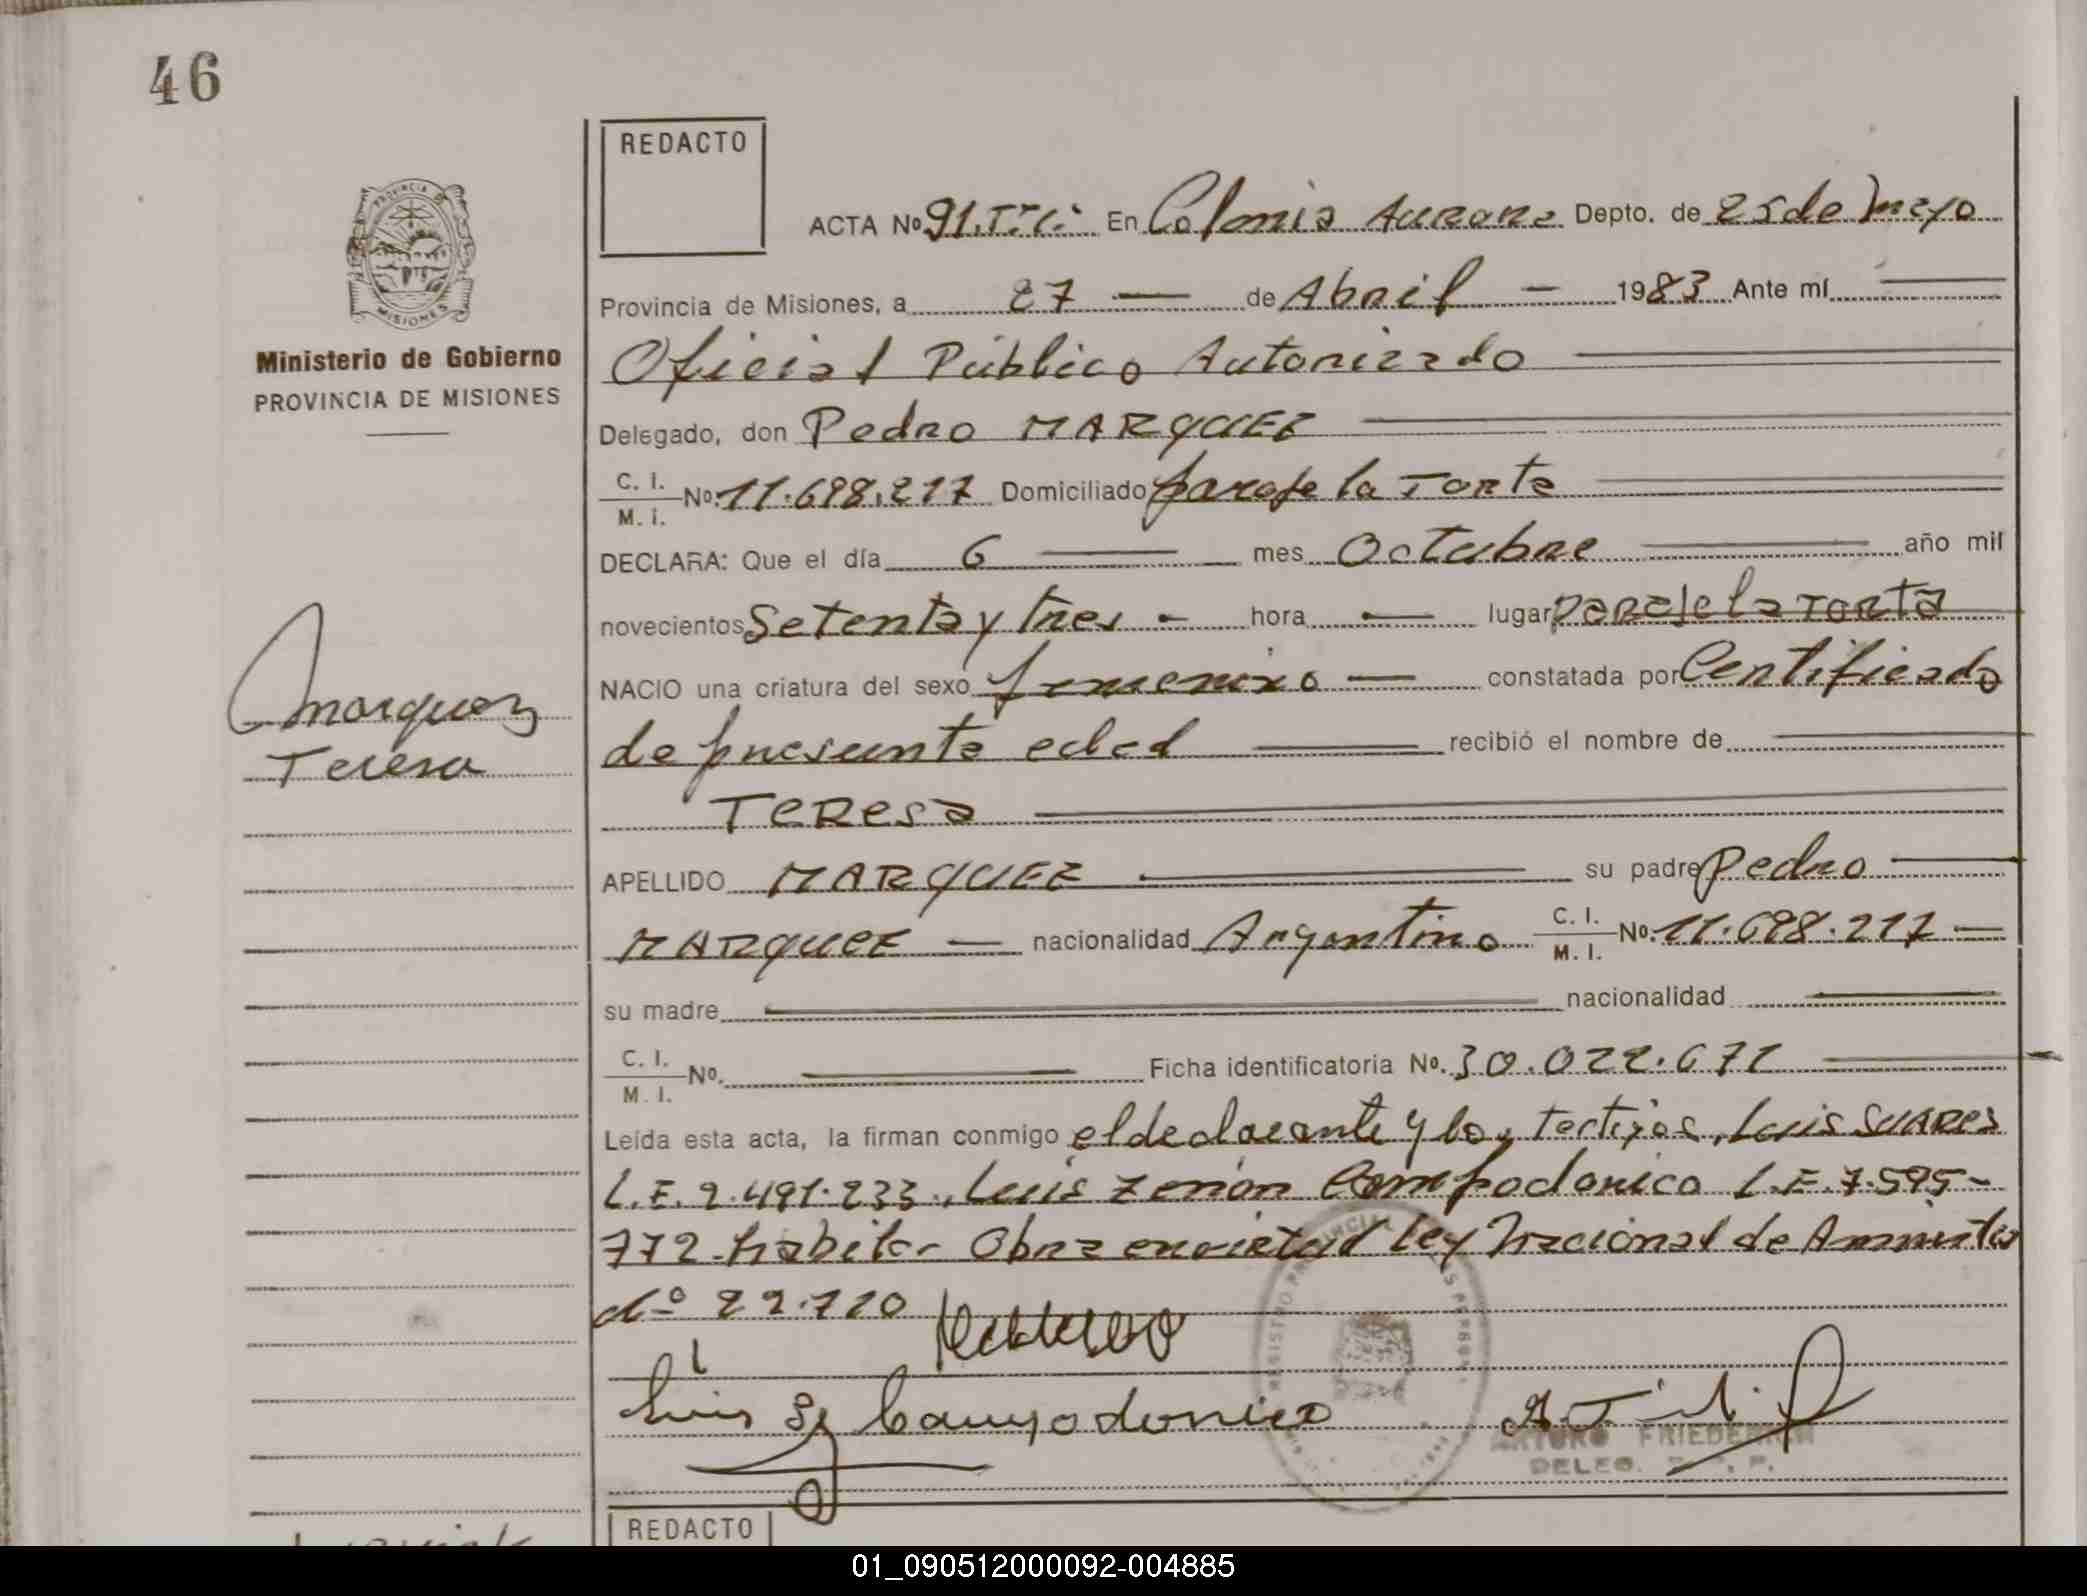 46
REDACTO
ACTA Nº 91.T:I: En Colonia Aurora Depto. de 25 de Mayo
PROVINCIA DE
MISIONES
Provincia de Misiones, a 27 — de Abril — 1983 Ante mí
Ministerio de Gobierno
PROVINCIA DE MISIONES
Oficial Público Autorizado
Delegado, don Pedro MARQUEZ
C. I.
M. I. Nº. 11.698.217 Domiciliado paraje la Torta
DECLARA: Que el día 6 — mes Octubre — año mil
novecientos Setenta y tres - hora — lugar paraje la Torta
NACIO una criatura del sexo femenino — constatada por Certificado
Marquez
Teresa
de presunta edad — recibió el nombre de
Teresa
APELLIDO MARQUEZ — su padre Pedro
MARQUEZ — nacionalidad Argentino C. I.
M. I. Nº. 11.698.217 —
su madre — nacionalidad —
C. I.
M. I. Nº. — Ficha identificatoria Nº. 30.022.671
Leída esta acta, la firman conmigo el declarante y los testigos, Luis SUARES
L.E. 2.491.233., Luis Zenón Campodonico L.E. 7.595-
772- habil - Obra en virtud Ley Nacional de Amnistia
Nº 22.710
Luis Z. Campodonico
REGISTRO PROVINCIAL
ARTURO FRIEDERICH
DELEG.
REDACTO
01_090512000092-004885